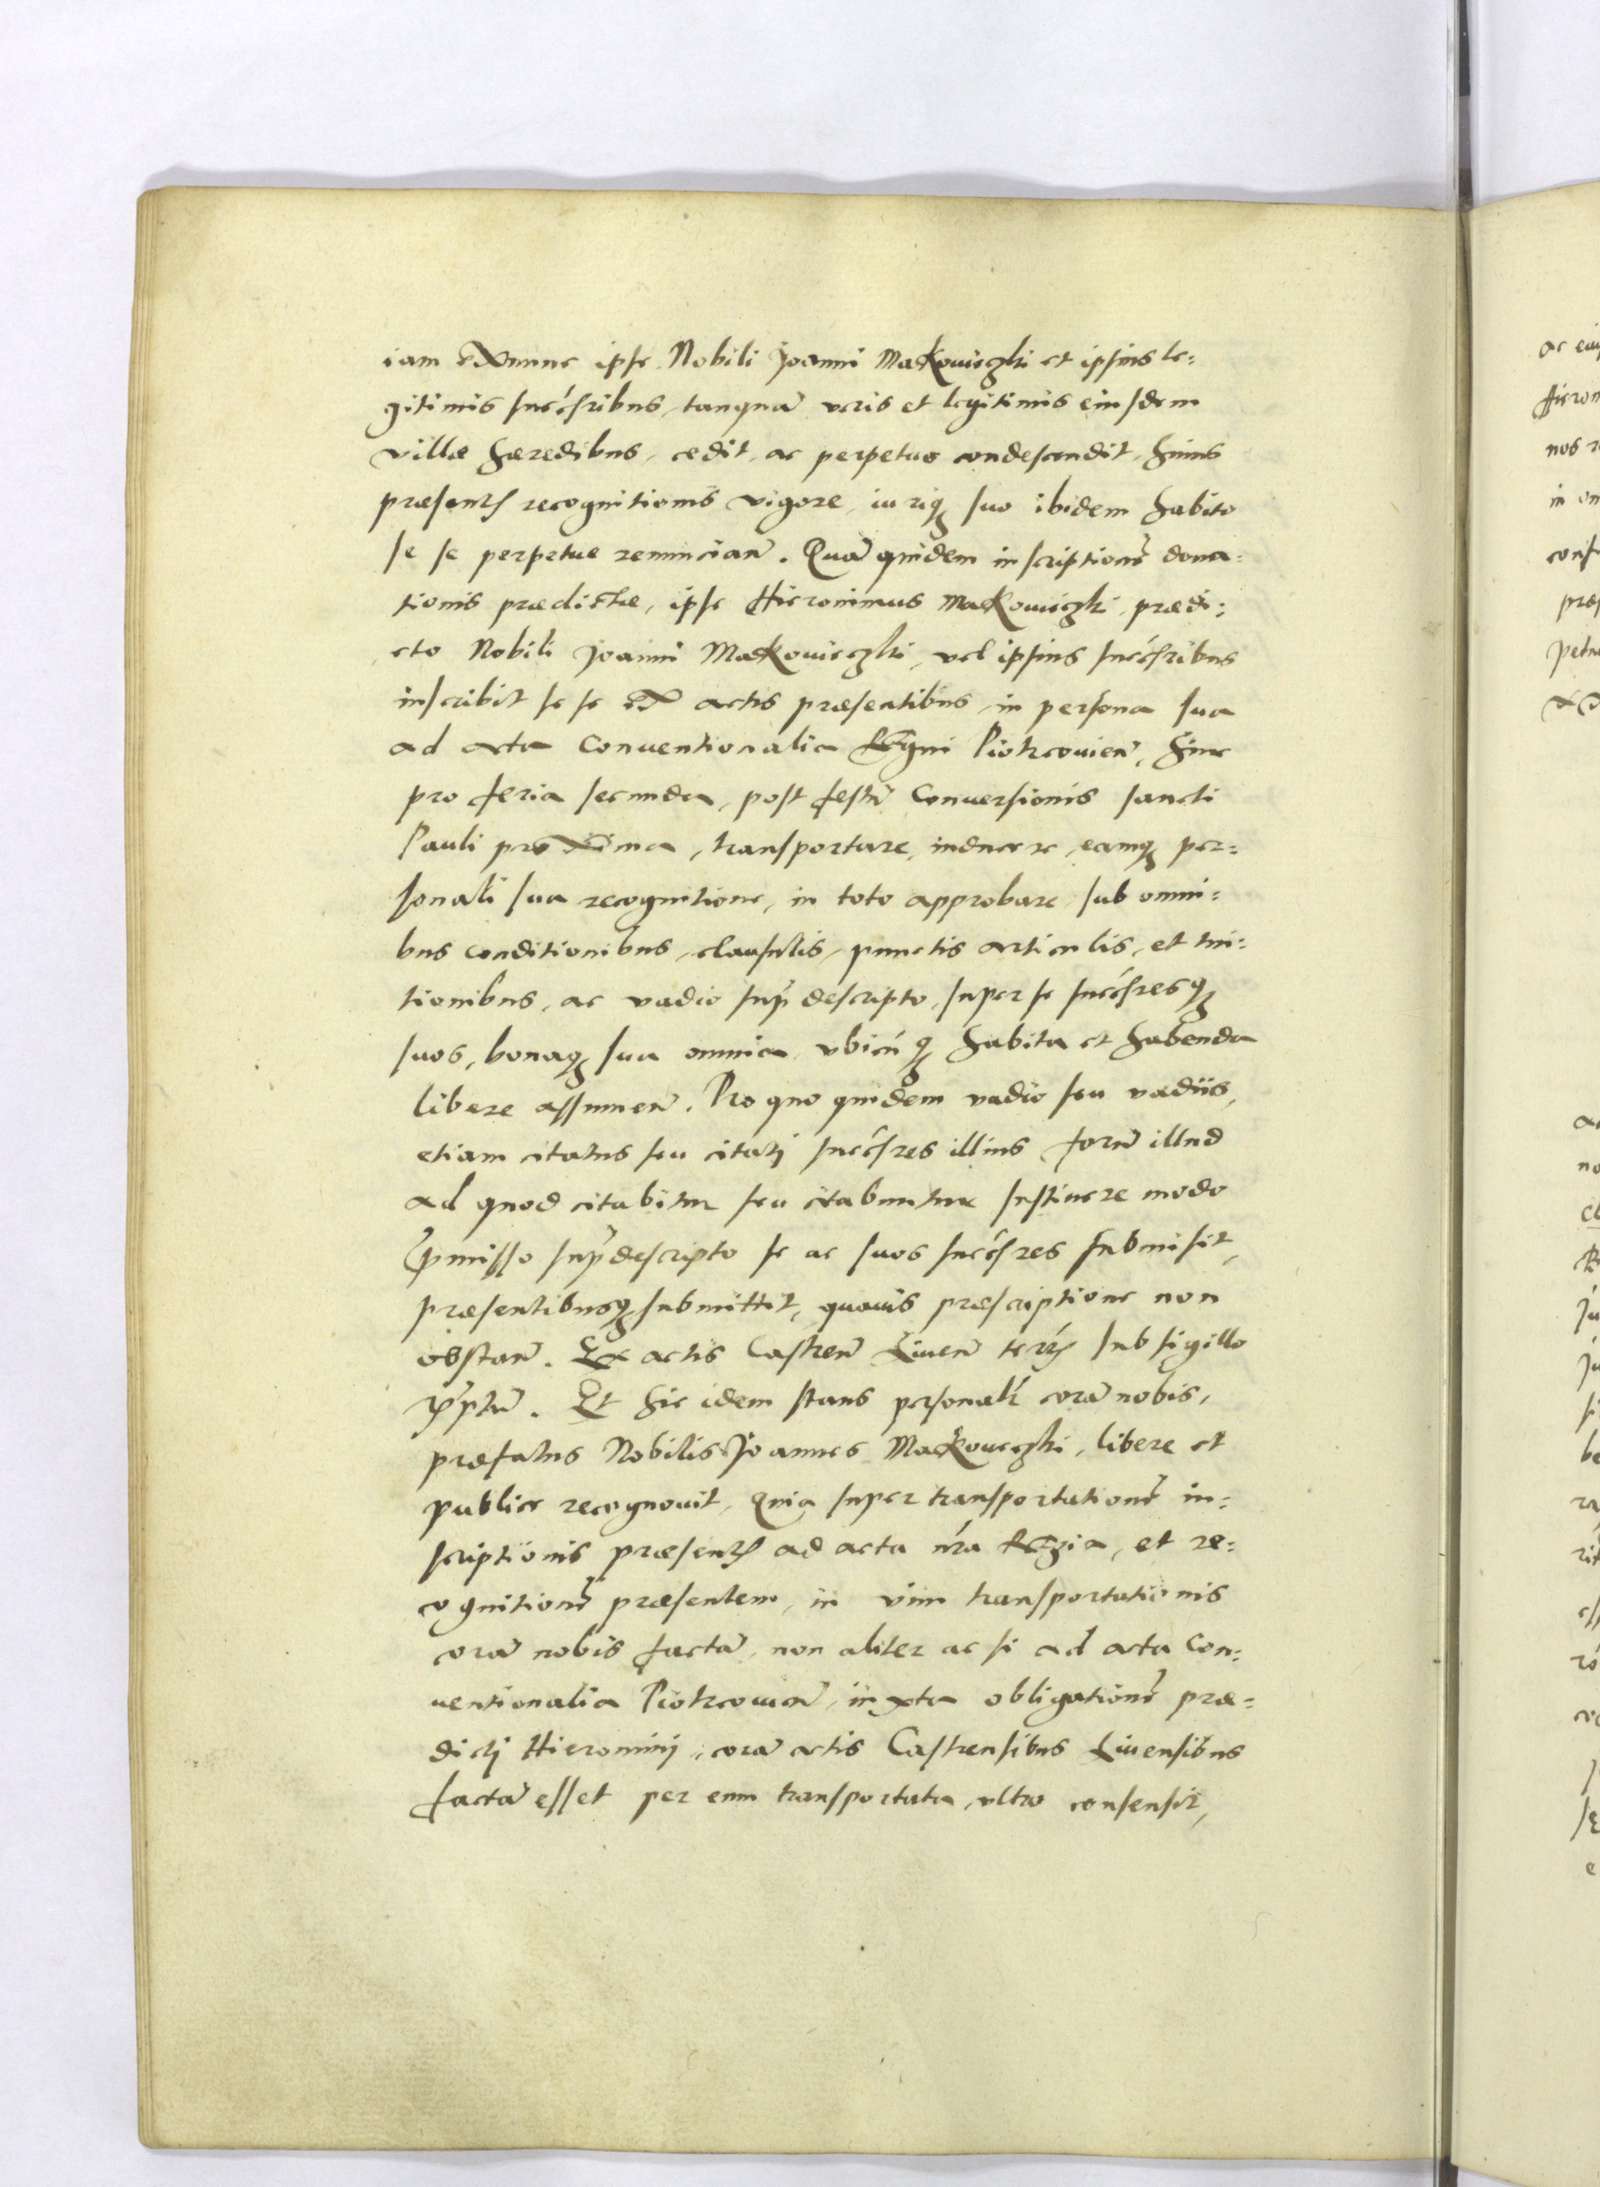 iam exnunc ipse Nobili Joanni Makowieczki et ipsius le=
gitimis succꝯribus, tanquã veris et legitimis eiusdem
villæ hæredibus, cedit, ac perpetuo condescendit, huius
præsentꝭ recognitionis vigore, iuriqꝫ suo ibidem habito
se se perpetue renuncian̄. Quã quidem inscriptionẽ dona=
tionis prædictæ, ipse Hieronimus Makowieczki, prædi=
cto Nobili Joanni Makowieczki, vel ipsius succꝯribus
inscribit se se ex actis præsentibus, in persona sua
ad acta Conventionalia Regni Piotrcovien̄, hinc
pro feria secunda, post festũ Conversionis sancti
Pauli proxima, transportare, inducere, eamqꝫ per=
sonali sua recognitione, in toto approbare sub omni=
bus conditionibus, clausulis, punctis articulis, et tui=
tionibus, ac vadio sup̃descripto, super se succꝯresqꝫ
suos, bonaqꝫ sua omnia, vbicũqꝫ habita et habenda
libere assumen̄. Pro quo quidem vadio seu vadiis,
etiam citatus seu citati succꝯres illius forũ illud
ad quod citabitur seu citabuntur sustinere modo
p̃misso sup̃descripto se ac suos succꝯres submisit,
præsentibusqꝫ submittit, quavis præscriptione non
obstan̄. Ex actis Castren̄ Liven̄ terrꝭ sub sigillo
rescriptũ. Et hic idem stans personalr̃ corã nobis,
præfatus Nobilis Joannes Makoveczki, libere et
publice recognovit, Quia super transportationẽ in=
scriptionis præsentꝭ ad acta nr̃a Regia, et re=
cognitionẽ præsentem, in vim transportationis
corã nobis factã, non aliter ac si ad acta Con=
ventionalia Piotrcovien̄, iuxta obligationẽ præ=
dicti Hieronimi, corã actis Castrensibus Livensibus
factã esset per eum transportata, vltro consensit,